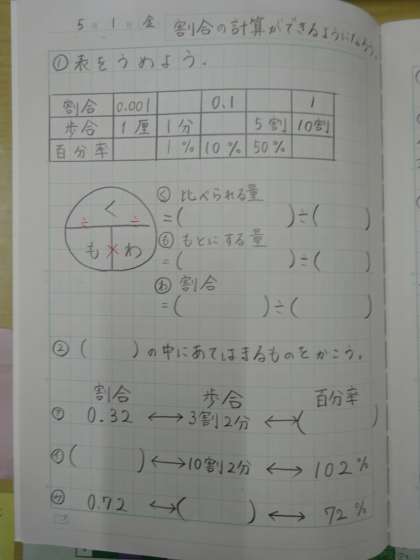 5.1.金 割合の計算ができるようになろう。
①表をうめよう.
割合 0.001 0.1 1
歩合 1厘 1分 5割 10割
百分率 1% 10% 50%
く
÷ ÷
も × わ
く 比べられる量
=( )÷( )
も もとにする量
=( )÷( )
わ 割合
=( )÷( )
②( )の中にあてはまるものをかこう.
割合 歩合 百分率
㋐ 0.32 ⟷ 3割2分 ⟷ ( )
㋑ ( ) ⟷ 10割2分 ⟷ 102%
㋒ 0.72 ⟷ ( ) ⟷ 72%